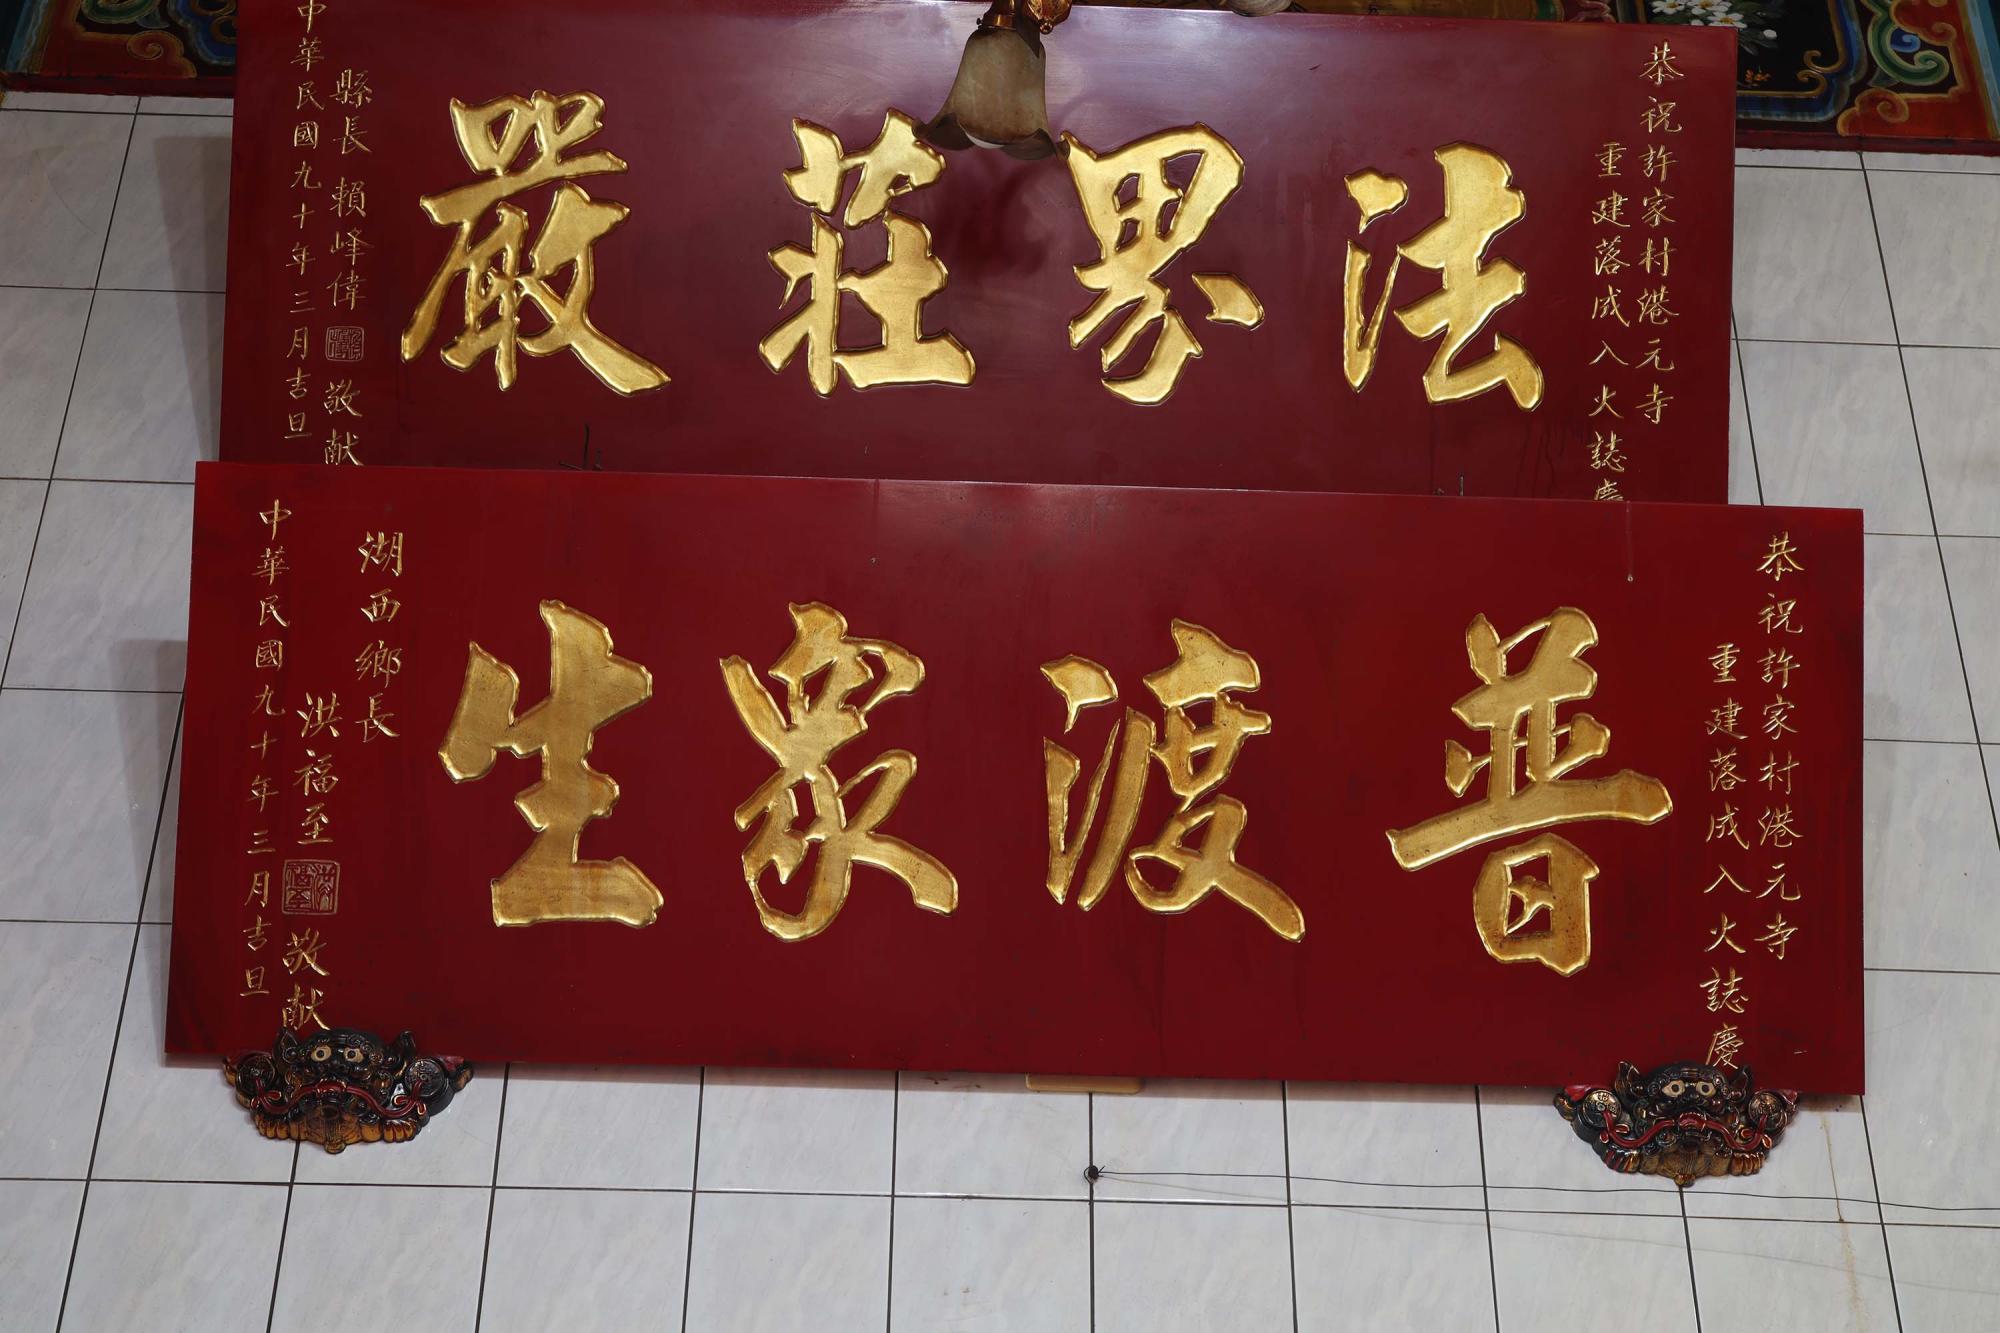 恭祝許家村港元寺
重建落成入火誌慶
法界莊嚴
縣長 賴峰偉 敬献
中華民國九十年三月吉旦
恭祝許家村港元寺
重建落成入火誌慶
普渡眾生
湖西鄉長
洪福至 敬献
中華民國九十年三月吉旦